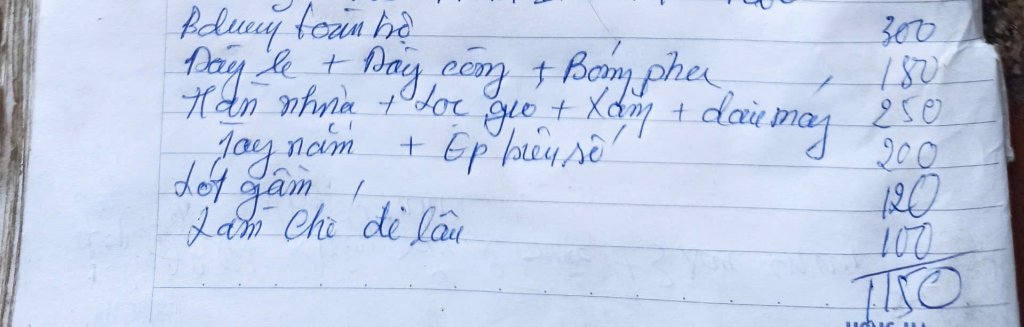 Bdưỡng toàn bộ 300
Dây le + Dây công + Bóng pha 180
Hàn nhựa + Lọc gió + Xăm + dầu máy 250
Tay nắm + Ép biển số 200
Lót gầm 120
Làm chế đề lâu 100
1150